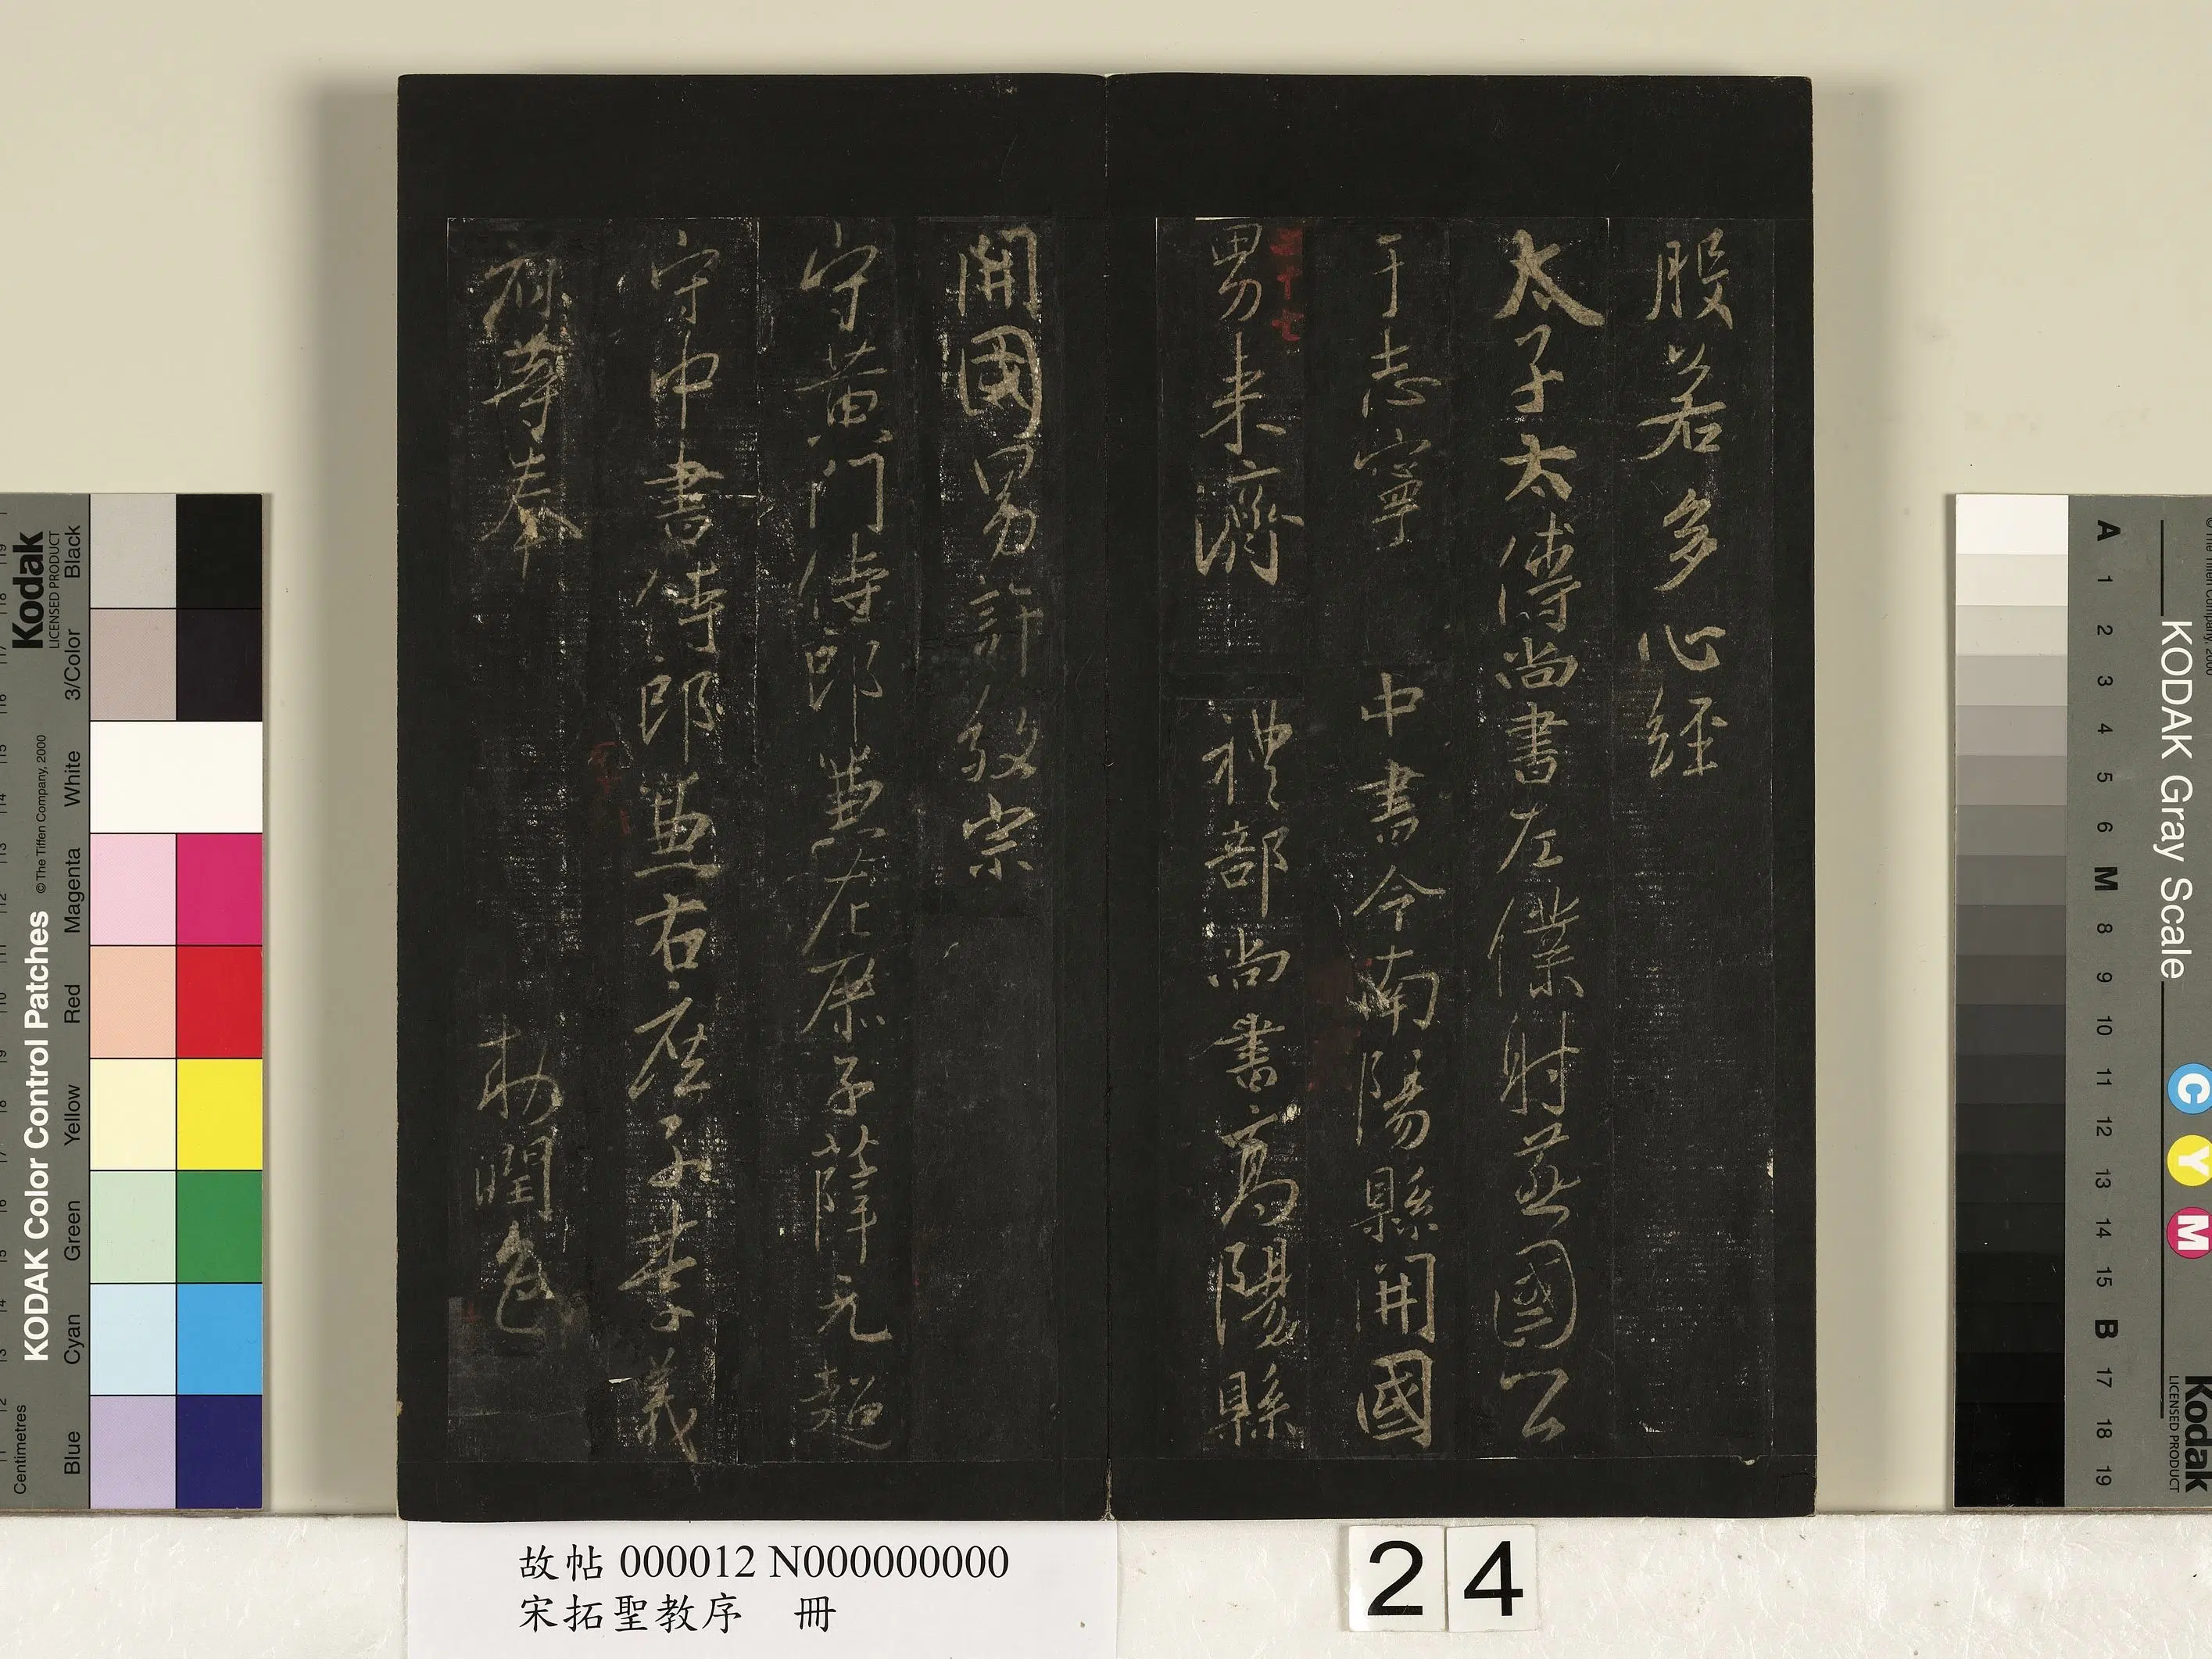 般若多心經
太子太傅尚書左僕射燕國公
于志寧 中書令南陽縣開國
男来濟 禮部尚書高陽縣
開國男許敬宗
守黃門侍郎兼左庶子薛元超
守中書侍郎兼右庶子李義
府等奉 勅潤色
故帖 000012 N000000000
宋拓聖教序 冊
24
KODAK Color Control Patches
©The Tiffen Company, 2000
Kodak
LICENSED PRODUCT
Centimetres
Blue
Cyan
Green
Yellow
Red
Magenta
White
3/Color
Black
KODAK Gray Scale
Kodak
LICENSED PRODUCT
C
Y
M
A
1
2
3
4
5
6
M
8
9
10
11
12
13
14
15
B
17
18
19